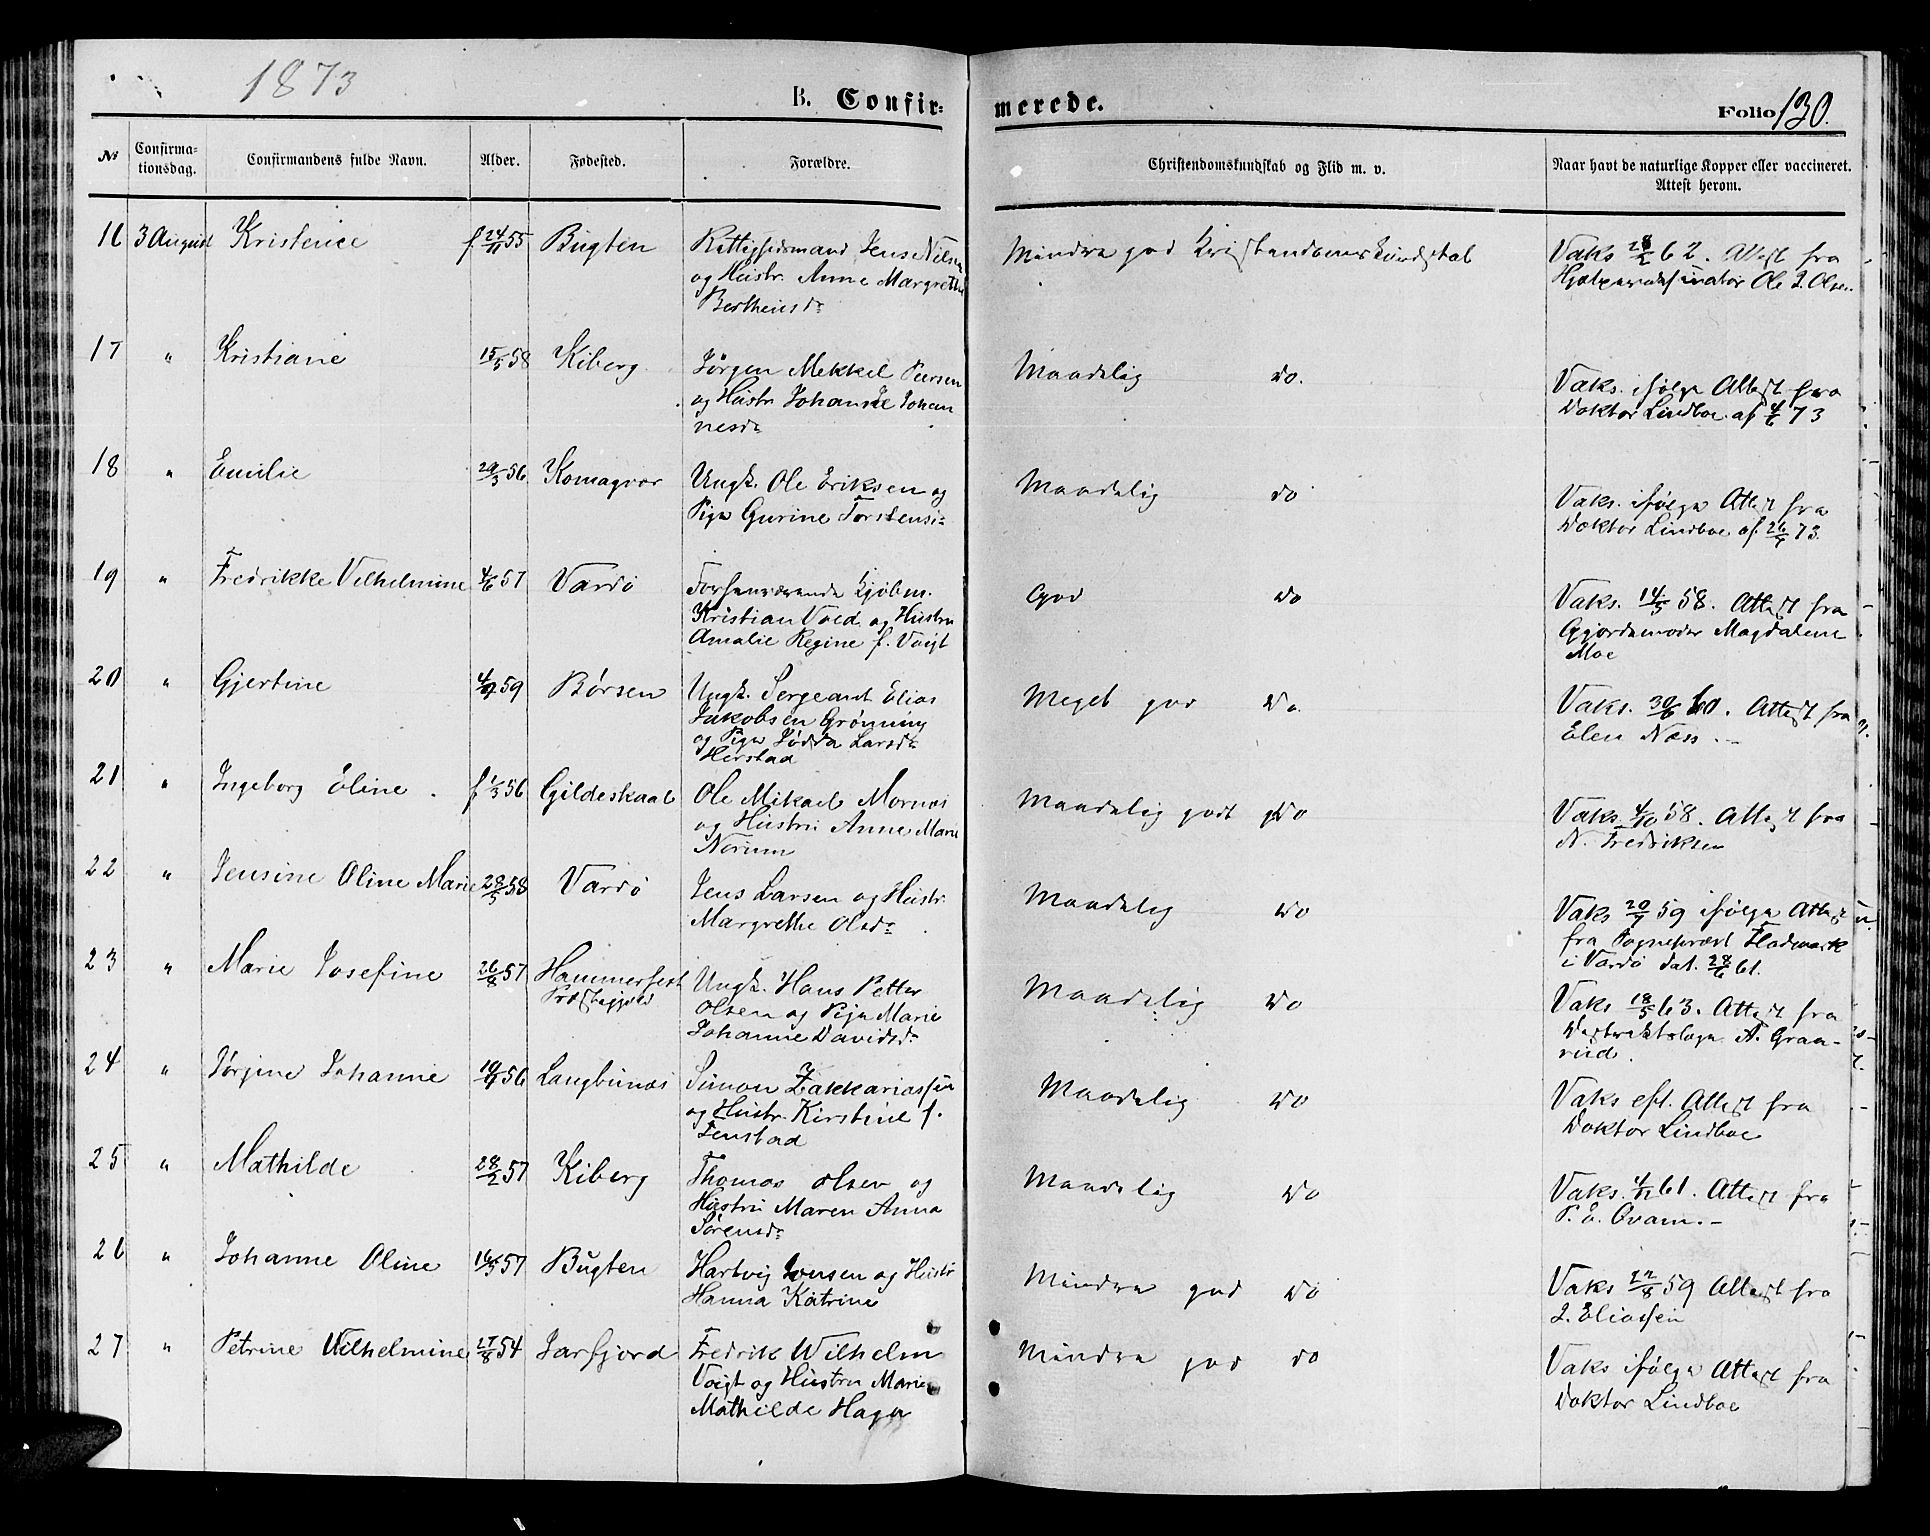 1873
B. Confir-
merede.
Folio 130.
No
Confirma-
tionsdag.
Confirmandens fulde Navn.
Alder.
Fødested.
Forældre.
Christendomskundskab og Flid m. v.
Naar havt de naturlige Kopper eller vaccineret.
Attest herom.
16 3 August Kristence f. 24/11 55 Bugten
Rettighedsmand Jens Nilsen
og Hustr. Anne Margrethe
Bertheusdr
Mindre god Kristendomskundskab
Vaks 28/2 62. Attest fra
Hjælpevaksinatør Ole J. Olsen
17 " Kristiane 15/5 58 Kiberg
Jørgen Mekkel Persen
og Hustr Johanne Johan
nesdr
Maadelig do.
Vaks. ifølge Attest fra
Doktor Lindboe af 4/6 73
18 " Emilie 29/3 56 Komagvær
Ungk. Ole Eriksen og
Pige Gurine Torstensdr
Maadelig do
Vaks. ifølge Attest fra
Doktor Lindboe af 26/7 73.
19 " Fredrikke Vilhelmine 4/6 57 Vardø
Forhenværende Kjøbm.
Kristian Vold og Hustru
Amalie Regine f. Voigt
God do
Vaks. 14/5 58. Attest fra
Gjordemoder Magdalene
Moe
20 " Gjertine 59 Børsen
Ungk. Sergeant Elias
Jakobsen Grønning
og Pige Larsdr
Herstad
Meget god do.
Vaks. 30/6 60. Attest fra
Elen Næss.
21 " Ingeborg Eline. f 1/3 56 Gildeskaal
Ole Mikael Mornæs
og Hustru Anne Marie
Norum
Maadelig godt do
Vaks. 4/10 58. Attest fra
N. Fredriksen
22 " Jensine Oline Marie 28/5 58 Vardø
Jens Larsen og Hustr.
Margrethe Olsdr
Maadelig do
Vaks 20/7 59 ifølge Attest
fra Sogneprest Flodmark
i Vardø dat. 28/6 61.
23 " Marie Josefine 26/8 57 Hammerfest
Præstegjeld
Ungk. Hans Petter
Olsen og Pige Marie
Johanne Davidsdr
Maadelig do
Vaks 18/5 63. Attest fra
Destriktslæge A. Graa-
rud.
24 " Jørgine Johanne 56 Langbunæs
Simon Zakkariassen
og Hustr. Kirstine f.
Fenstad
Maadelig do
Vaks eft. Attest fra
Doktor Lindboe
25 " Mathilde 28/2 57 Kiberg
Thomas Olsen og
Hustru Maren Anna
Sørensdr
Maadelig do
Vaks. 61. Attest fra
P. A. Qvam.
26 " Johanne Oline 16/5 57 Bugten
Hartvig Jensen og Hustr
Hanna Katrine
Mindre god do
Vaks 22/8 59 Attest fra
J. Eliassen
27 " Petrine Vilhelmine 27/8 54 Jarfjord
Fredrik Wilhelm
Voigt og Hustru Marie
Mathilde Hagen
Mindre god do
Vaks ifølge Attest fra
Doktor Lindboe